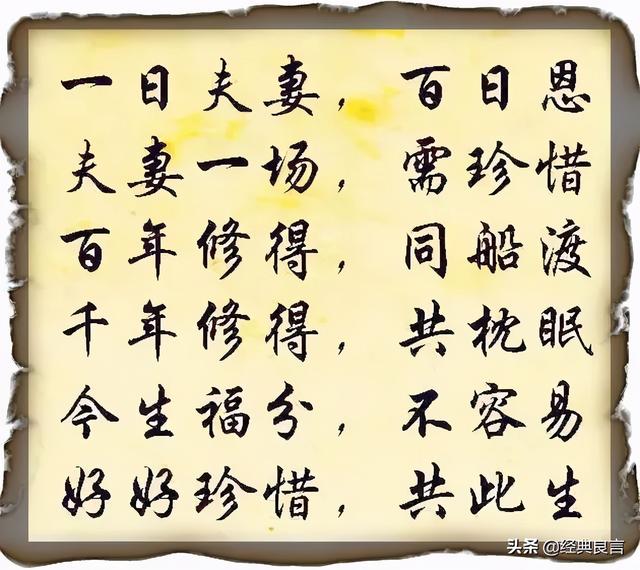 一日夫妻，百日恩
夫妻一场，需珍惜
百年修得，同船渡
千年修得，共枕眠
今生福分，不容易
好好珍惜，共此生
头条 @经典良言